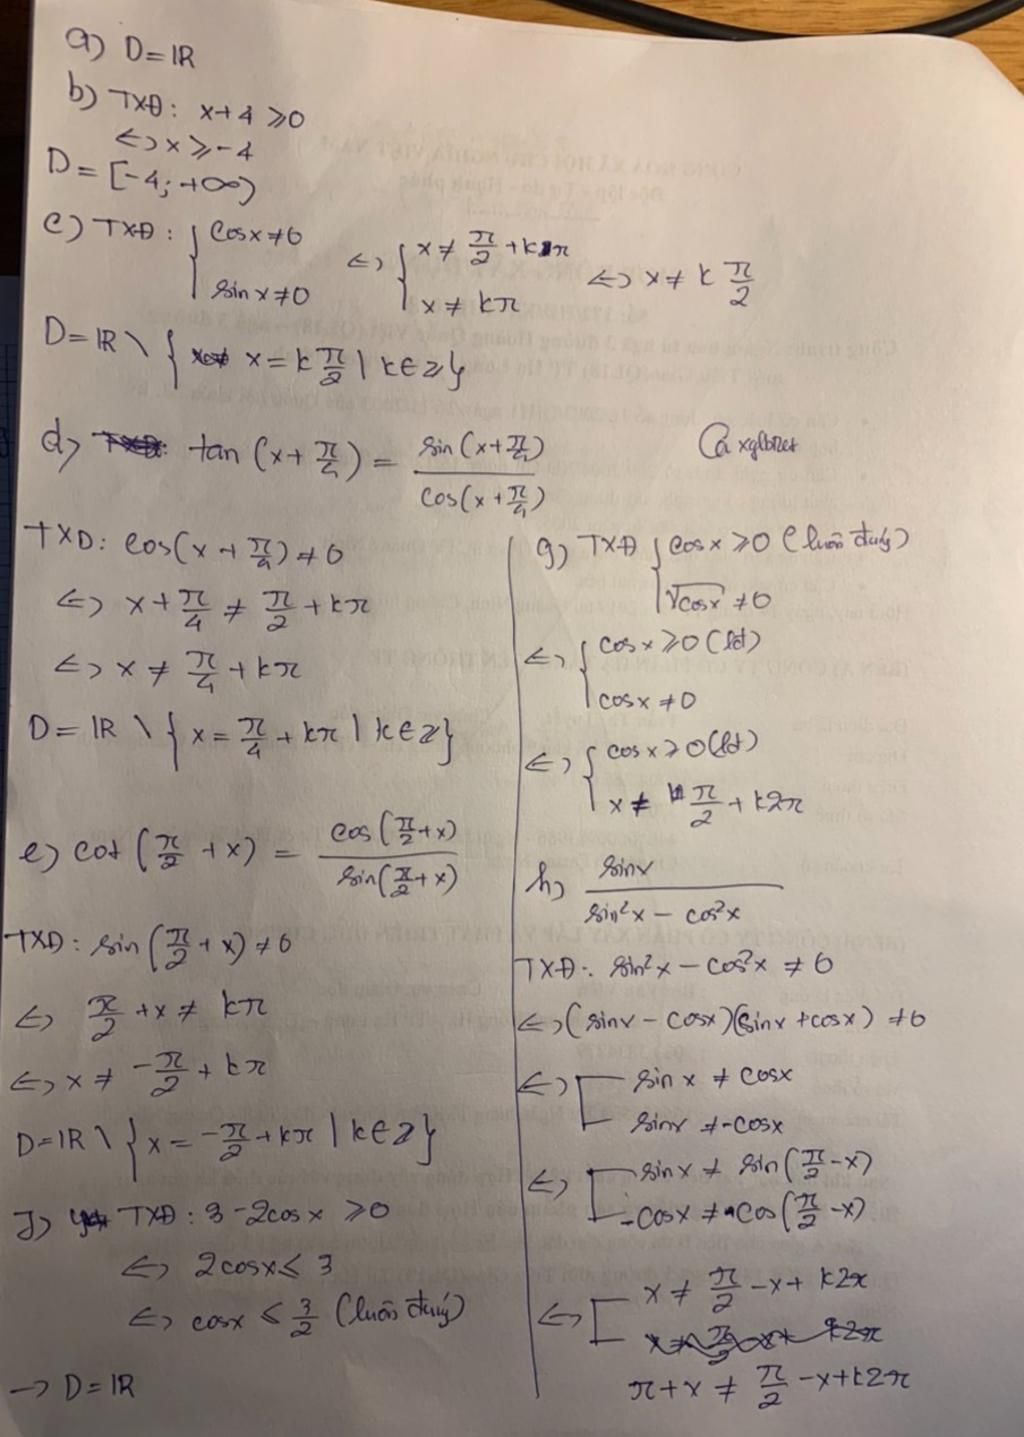 a) D = ℝ
b) TXĐ: x + 4 ⩾ 0
⇔ x ⩾ -4
D = [-4; +∞)
c) TXĐ: { cosx ≠ 0 ; sinx ≠ 0 ⇔ { x ≠ π/2 + kπ ; x ≠ kπ ⇔ x ≠ k π/2
D = ℝ \ { x = k π/2 | k ∈ Z }
d) tan (x + π/4) = sin(x + π/4) / cos(x + π/4)
TXD: cos(x + π/4) ≠ 0
⇔ x + π/4 ≠ π/2 + kπ
⇔ x ≠ π/4 + kπ
D = ℝ \ { x = π/4 + kπ | k ∈ Z }
e) cot (π/2 + x) = cos(π/2 + x) / sin(π/2 + x)
TXD: sin (π/2 + x) ≠ 0
⇔ π/2 + x ≠ kπ
⇔ x ≠ -π/2 + kπ
D = ℝ \ { x = -π/2 + kπ | k ∈ Z }
TXĐ: 3 - 2cosx ⩾ 0
⇔ 2cosx ⩽ 3
⇔ cosx ⩽ 3/2 (luôn đúng)
→ D = ℝ
g) TXĐ { cosx ⩾ 0 (luôn đúng) ; √cosx ≠ 0
⇔ { cosx ⩾ 0 (lđ) ; cosx ≠ 0
⇔ { cosx ⩾ 0 (lđ) ; x ≠ π/2 + k2π
h) sinx / sin²x - cos²x
TXĐ: sin²x - cos²x ≠ 0
⇔ (sinx - cosx)(sinx + cosx) ≠ 0
⇔ [ sinx ≠ cosx ; sinx ≠ -cosx
⇔ [ sinx ≠ sin(π/2 - x) ; -cosx ≠ cos(π/2 - x)
⇔ [ x ≠ π/2 - x + k2π
π + x ≠ π/2 - x + k2π